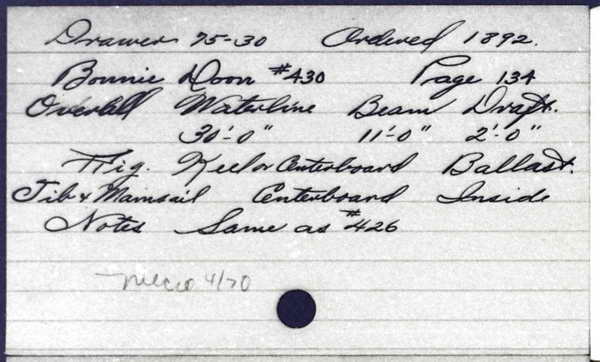 Drawer 75-30 Ordered 1892.
Bonnie Doon #430 Page 134
Overall Waterline Beam Draft.
30'-0" 11'-0" 2'-0"
Rig. Keel or Centerboard Ballast.
Jib & Mainsail Centerboard Inside
Notes Same as #426
4/70